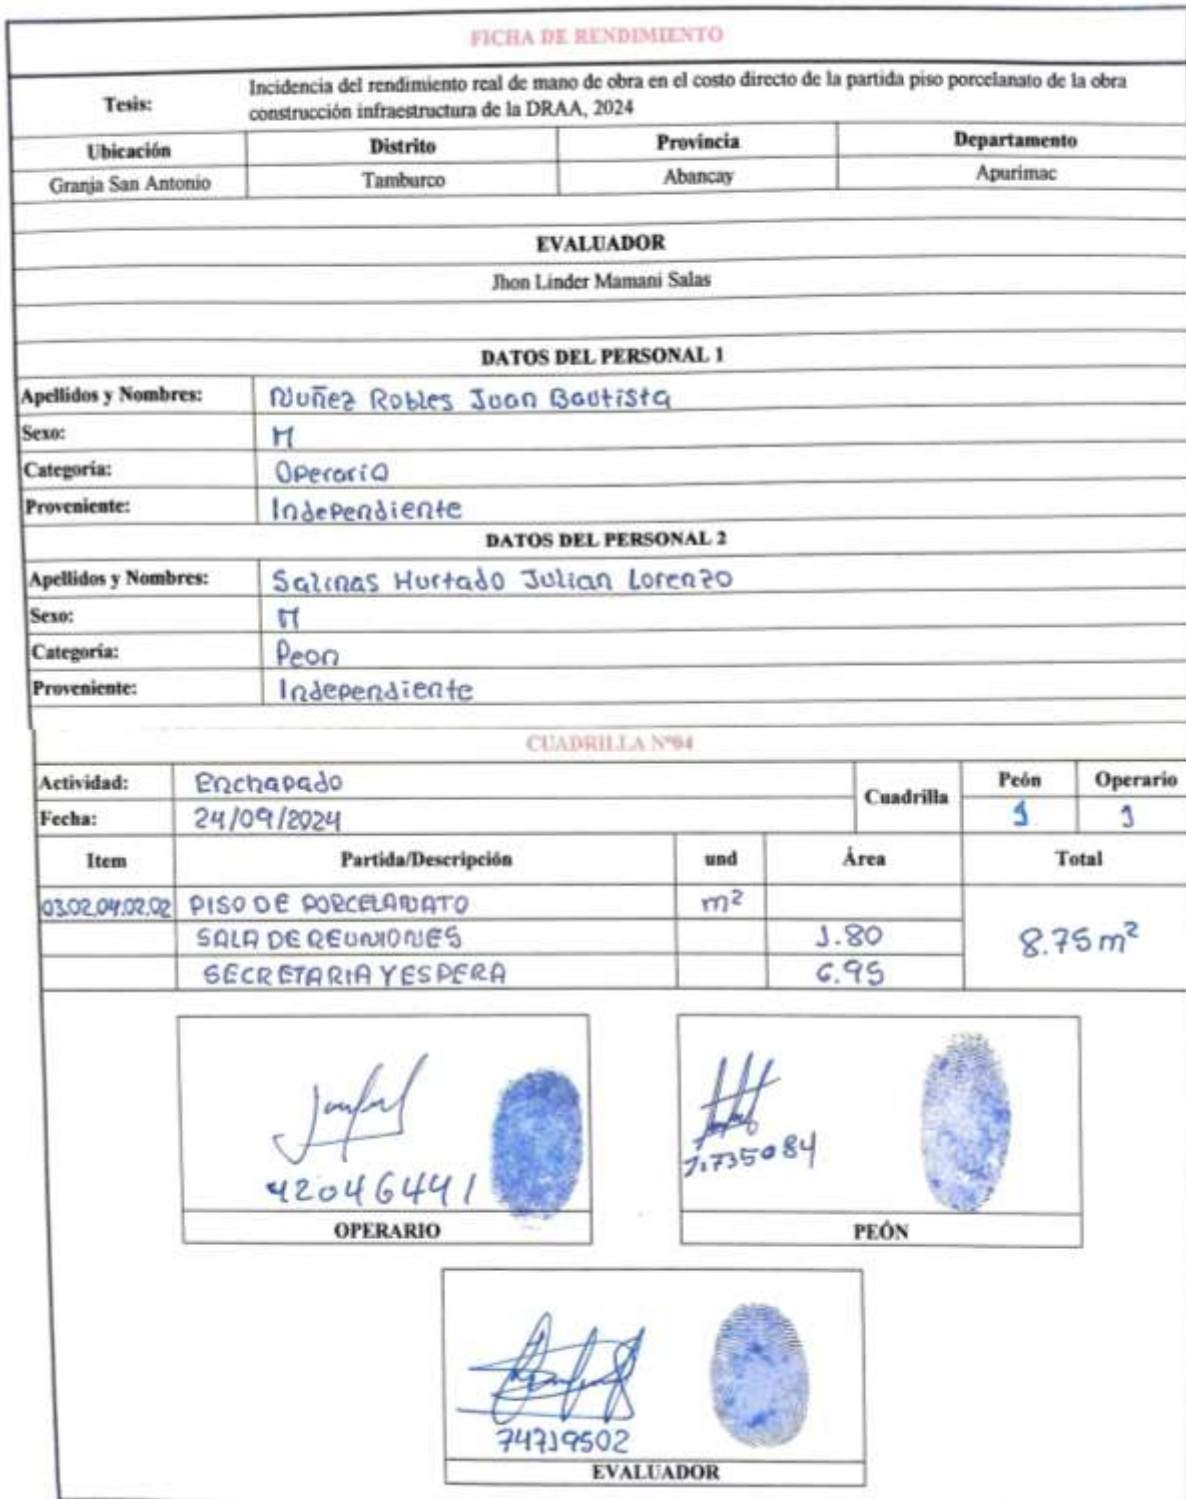 FICHA DE RENDIMIENTO
Tesis: Incidencia del rendimiento real de mano de obra en el costo directo de la partida piso porcelanato de la obra
construcción infraestructura de la DRAA, 2024
Ubicación Distrito Provincia Departamento
Granja San Antonio Tamburco Abancay Apurimac
EVALUADOR
Jhon Linder Mamani Salas
DATOS DEL PERSONAL 1
Apellidos y Nombres: Nuñez Robles Juan Bautista
Sexo: M
Categoría: Operario
Proveniente: Independiente
DATOS DEL PERSONAL 2
Apellidos y Nombres: Salinas Hurtado Julian Lorenzo
Sexo: M
Categoría: Peon
Proveniente: Independiente
CUADRILLA N°04
Actividad: Enchapado Cuadrilla Peón Operario
Fecha: 24/09/2024 1 1
Item Partida/Descripción und Área Total
03.02.04.02.02 PISO DE PORCELANATO m²
SALA DE REUNIONES 1.80 8.75 m²
SECRETARIA Y ESPERA 6.95
42046441
OPERARIO
PEÓN
74719502
EVALUADOR